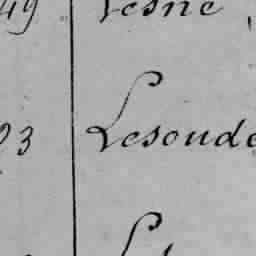 49 Lesne,
93 Lesoude